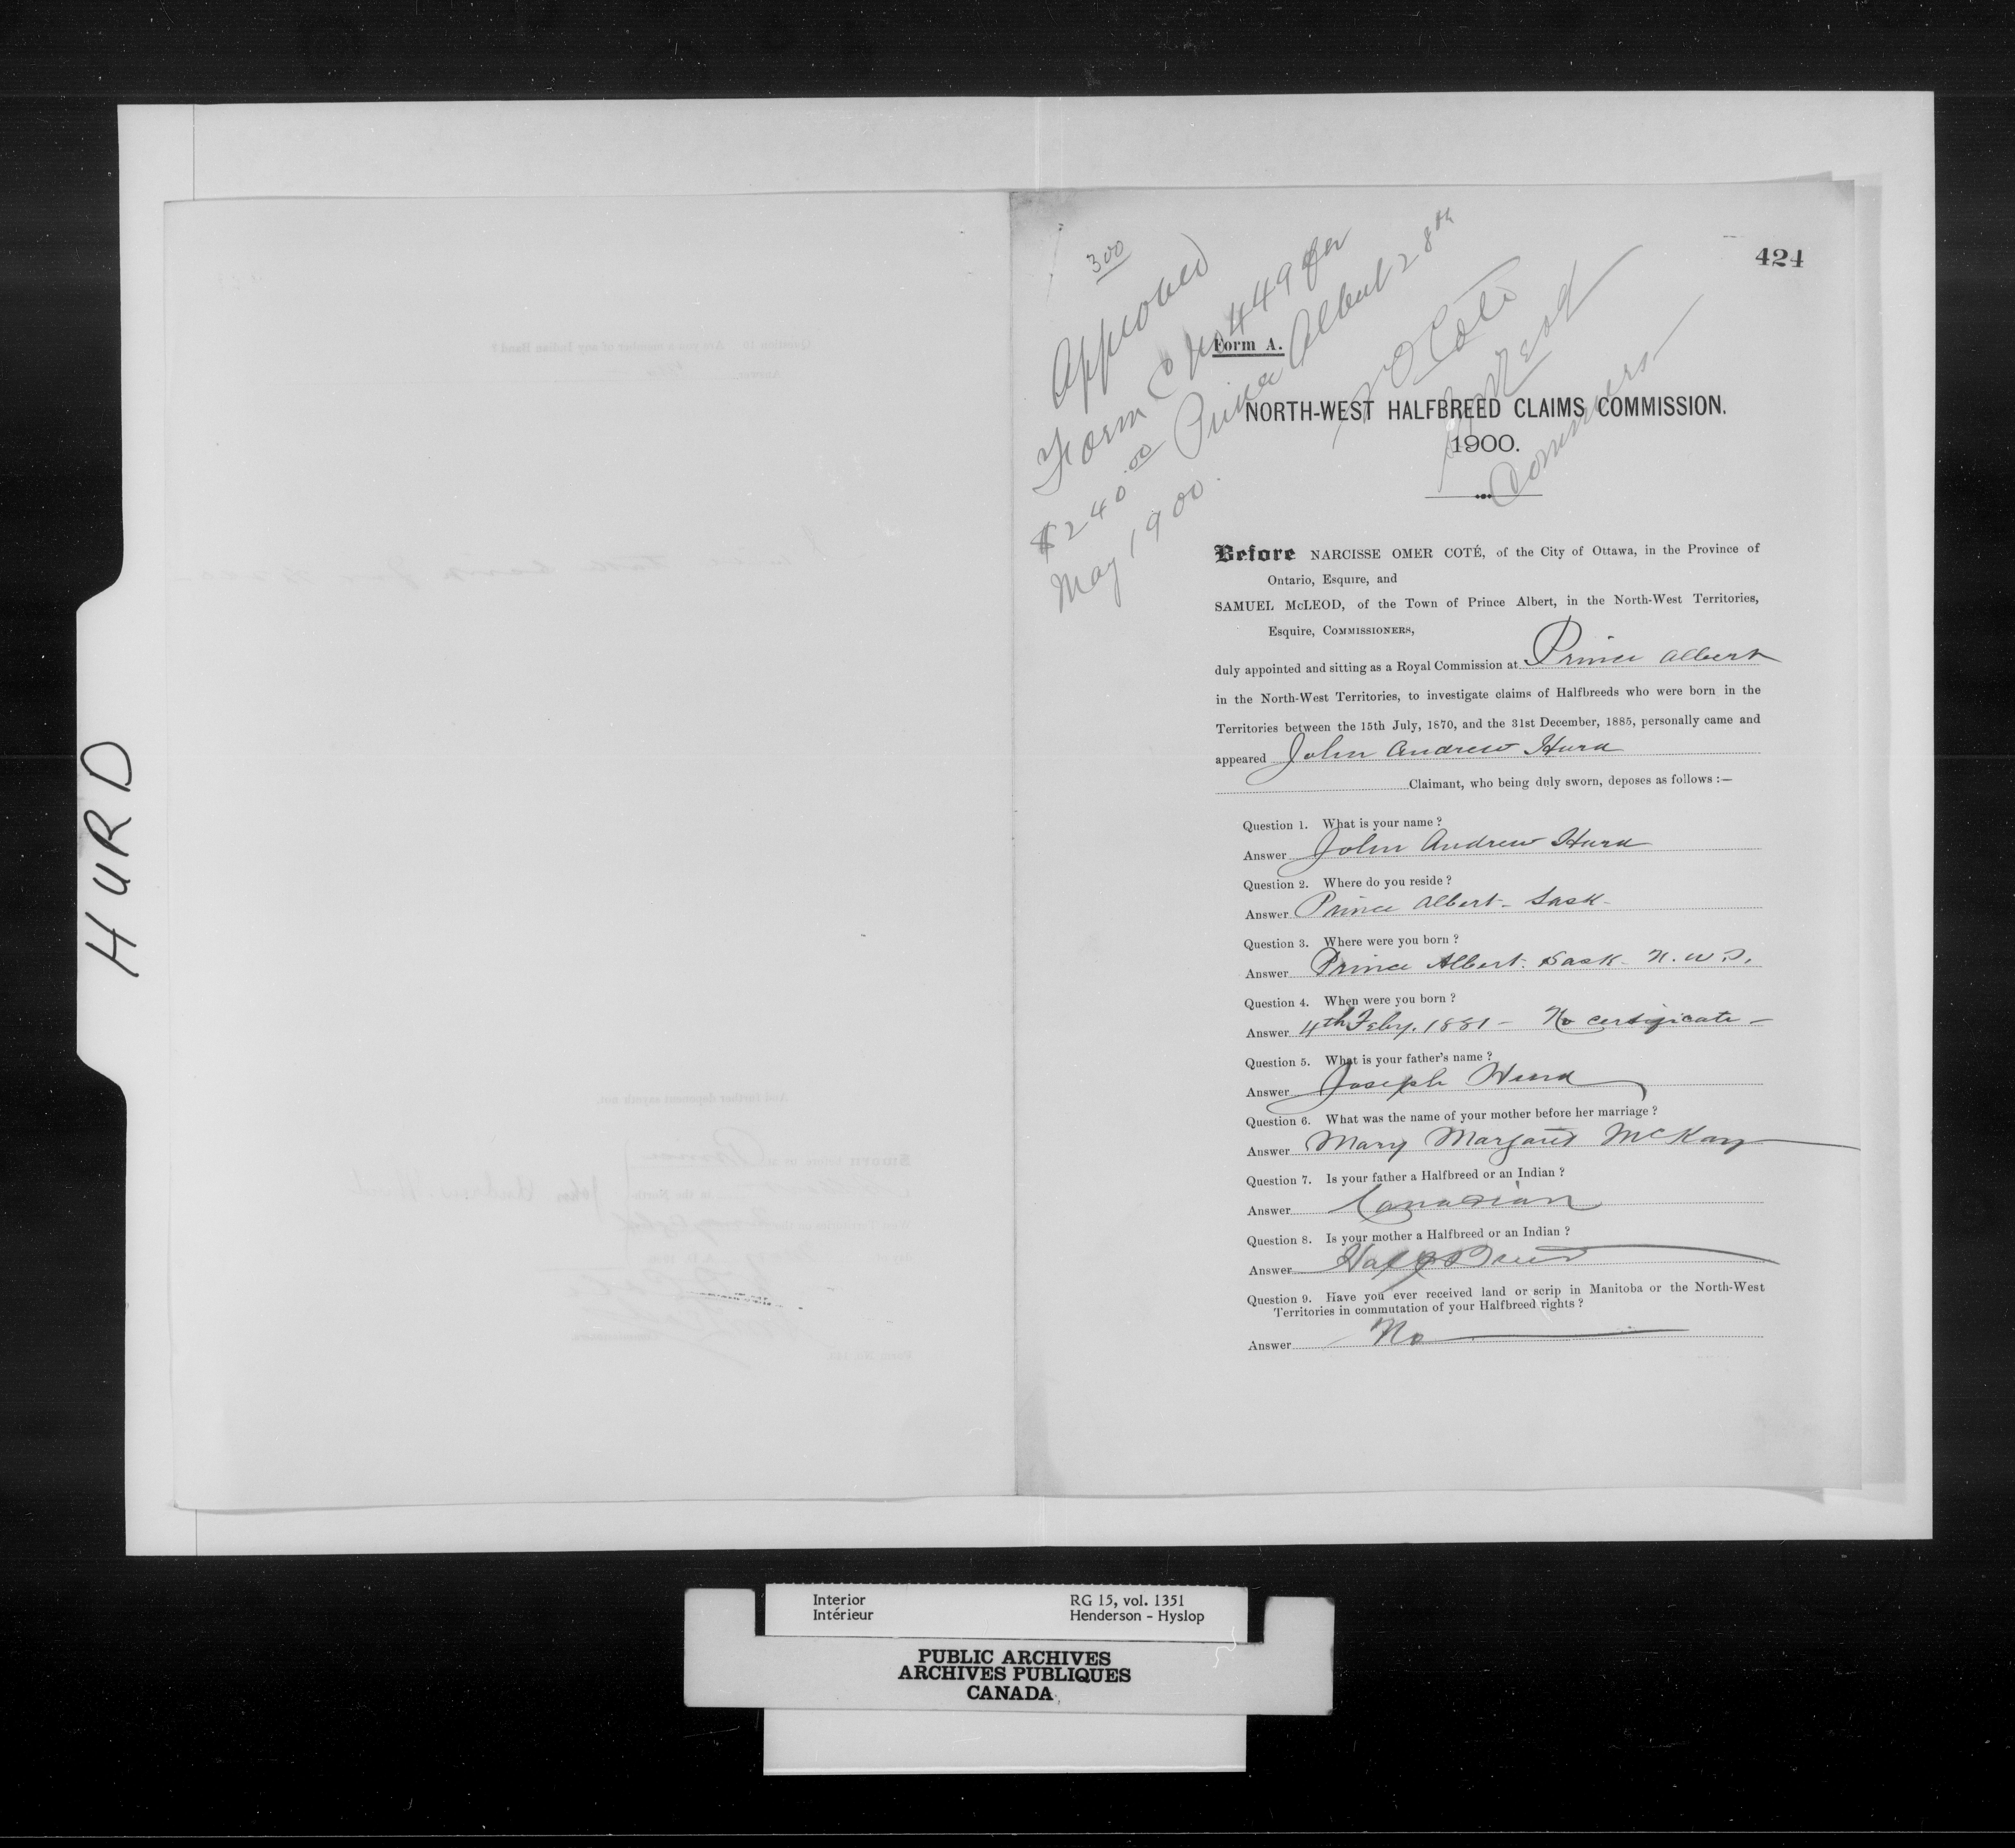 HURD
424
300
Approved
Form C No 449 for
$240.00 Prince Albert 28th
May 1900.
N O Coté
McLeod
Commers
Form A.
NORTH-WEST HALFBREED CLAIMS COMMISSION.
1900.
Before NARCISSE OMER COTÉ, of the City of Ottawa, in the Province of
Ontario, Esquire, and
SAMUEL McLEOD, of the Town of Prince Albert, in the North-West Territories,
Esquire, COMMISSIONERS,
duly appointed and sitting as a Royal Commission at Prince Albert
in the North-West Territories, to investigate claims of Halfbreeds who were born in the
Territories between the 15th July, 1870, and the 31st December, 1885, personally came and
appeared John Andrew Hurd
Claimant, who being duly sworn, deposes as follows :—
Question 1. What is your name ?
Answer John Andrew Hurd
Question 2. Where do you reside ?
Answer Prince Albert - Sask -
Question 3. Where were you born ?
Answer Prince Albert. Sask - N. W. T.
Question 4. When were you born ?
Answer 4th Feby. 1881 - No certificate -
Question 5. What is your father's name ?
Answer Joseph Hurd
Question 6. What was the name of your mother before her marriage ?
Answer Mary Margaret McKay
Question 7. Is your father a Halfbreed or an Indian ?
Answer Canadian
Question 8. Is your mother a Halfbreed or an Indian ?
Answer Half Breed
Question 9. Have you ever received land or scrip in Manitoba or the North-West
Territories in commutation of your Halfbreed rights ?
Answer No
Interior RG 15, vol. 1351
Intérieur Henderson - Hyslop
PUBLIC ARCHIVES
ARCHIVES PUBLIQUES
CANADA